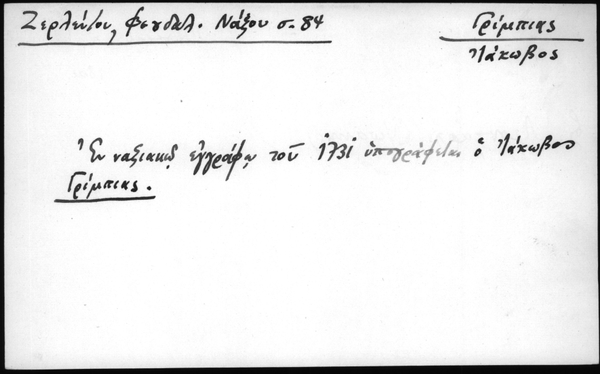 Ζερλέντου, Φεουδαλ. Νάξου σ. 84
Γρίμπιας
Ἰάκωβος
Ἐν ναξιακῷ ἐγγράφῳ τοῦ 1731 ὑπογράφεται ὁ Ἰάκωβος
Γρίμπιας.